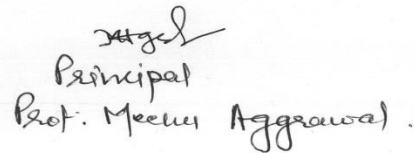 Principal
Prof. Meenu Aggrawal.